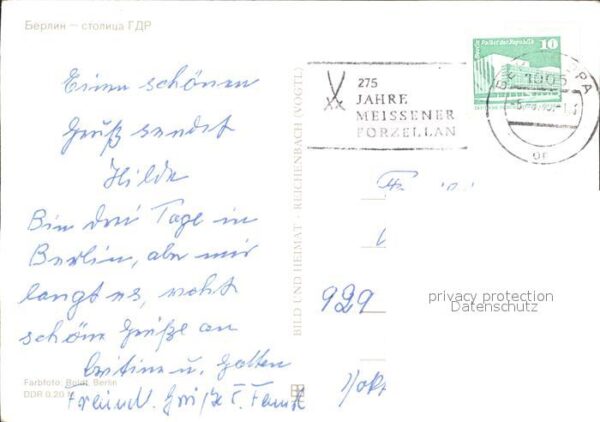 Берлин — столица ГДР
Einen schönen
Gruß sendet
Hilde
Bin drei Tage in
Berlin, aber mir
langt es, recht
schöne Grüße an
u. Gatten
Freundl. Grüße
Farbfoto: Boldt, Berlin
DDR 0.20 M
BILD UND HEIMAT · REICHENBACH (VOGTL)
275
JAHRE
MEISSENER
PORZELLAN
Palast der Republik
10
DDR
929
privacy protection
Datenschutz